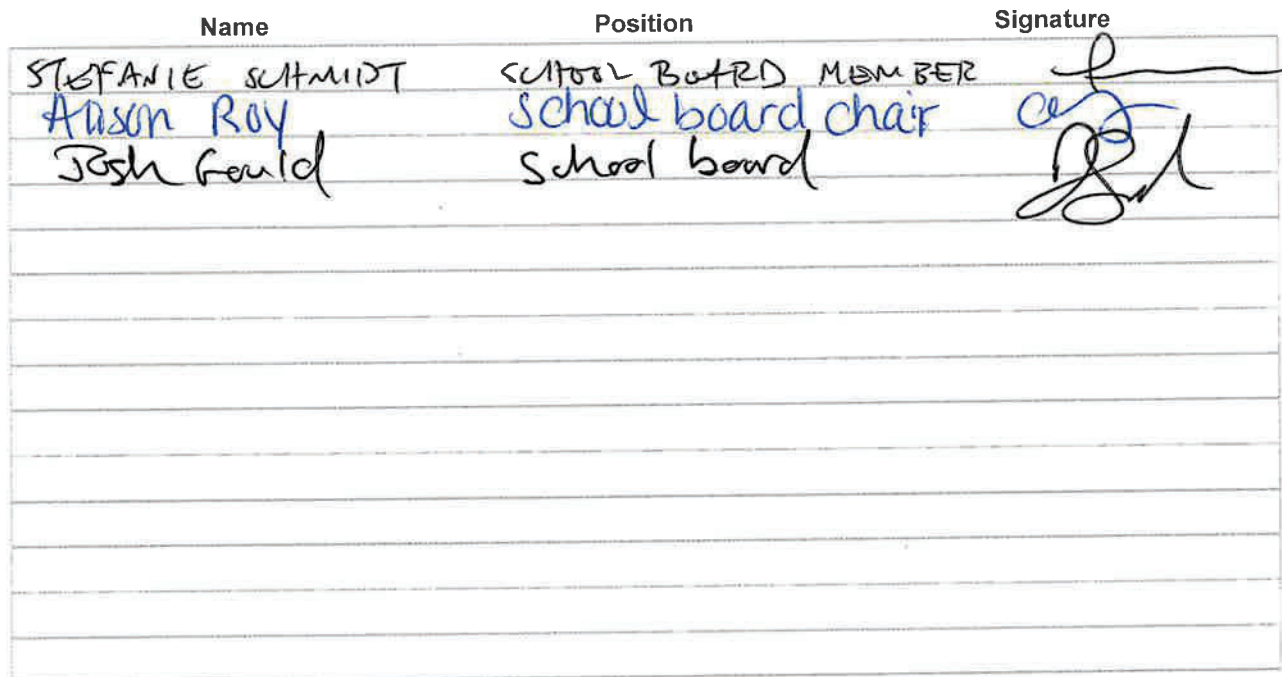 Name Position Signature
STEFANIE SCHMIDT SCHOOL BOARD MEMBER
Alison Roy School board chair
Josh Gould School board